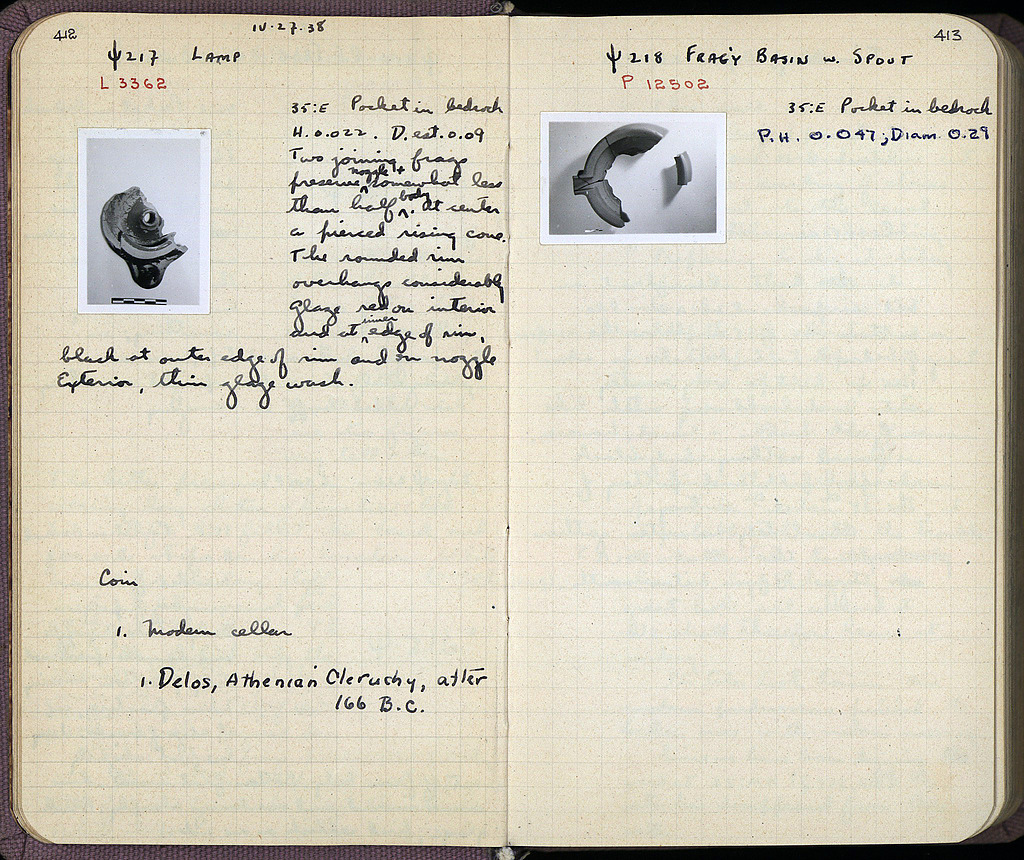 412
IV·27·38
ψ217 LAMP
L 3362
35:E Pocket in bedrock
H. 0.022. D. est. 0.09
Two joining frags
preserve nozzle + somewhat less
than half body. At center
a pierced rising cone.
The rounded rim
overhangs considerably
Glaze red on interior
and at inner edge of rim,
black at outer edge of rim and on nozzle
Exterior, thin glaze wash.
Coin
1. Modern cellar
1. Delos, Athenian Cleruchy, after
166 B.C.
413
ψ218 FRAG'Y BASIN W. SPOUT
P 12502
35:E Pocket in bedrock
P.H. 0.047; Diam. 0.29